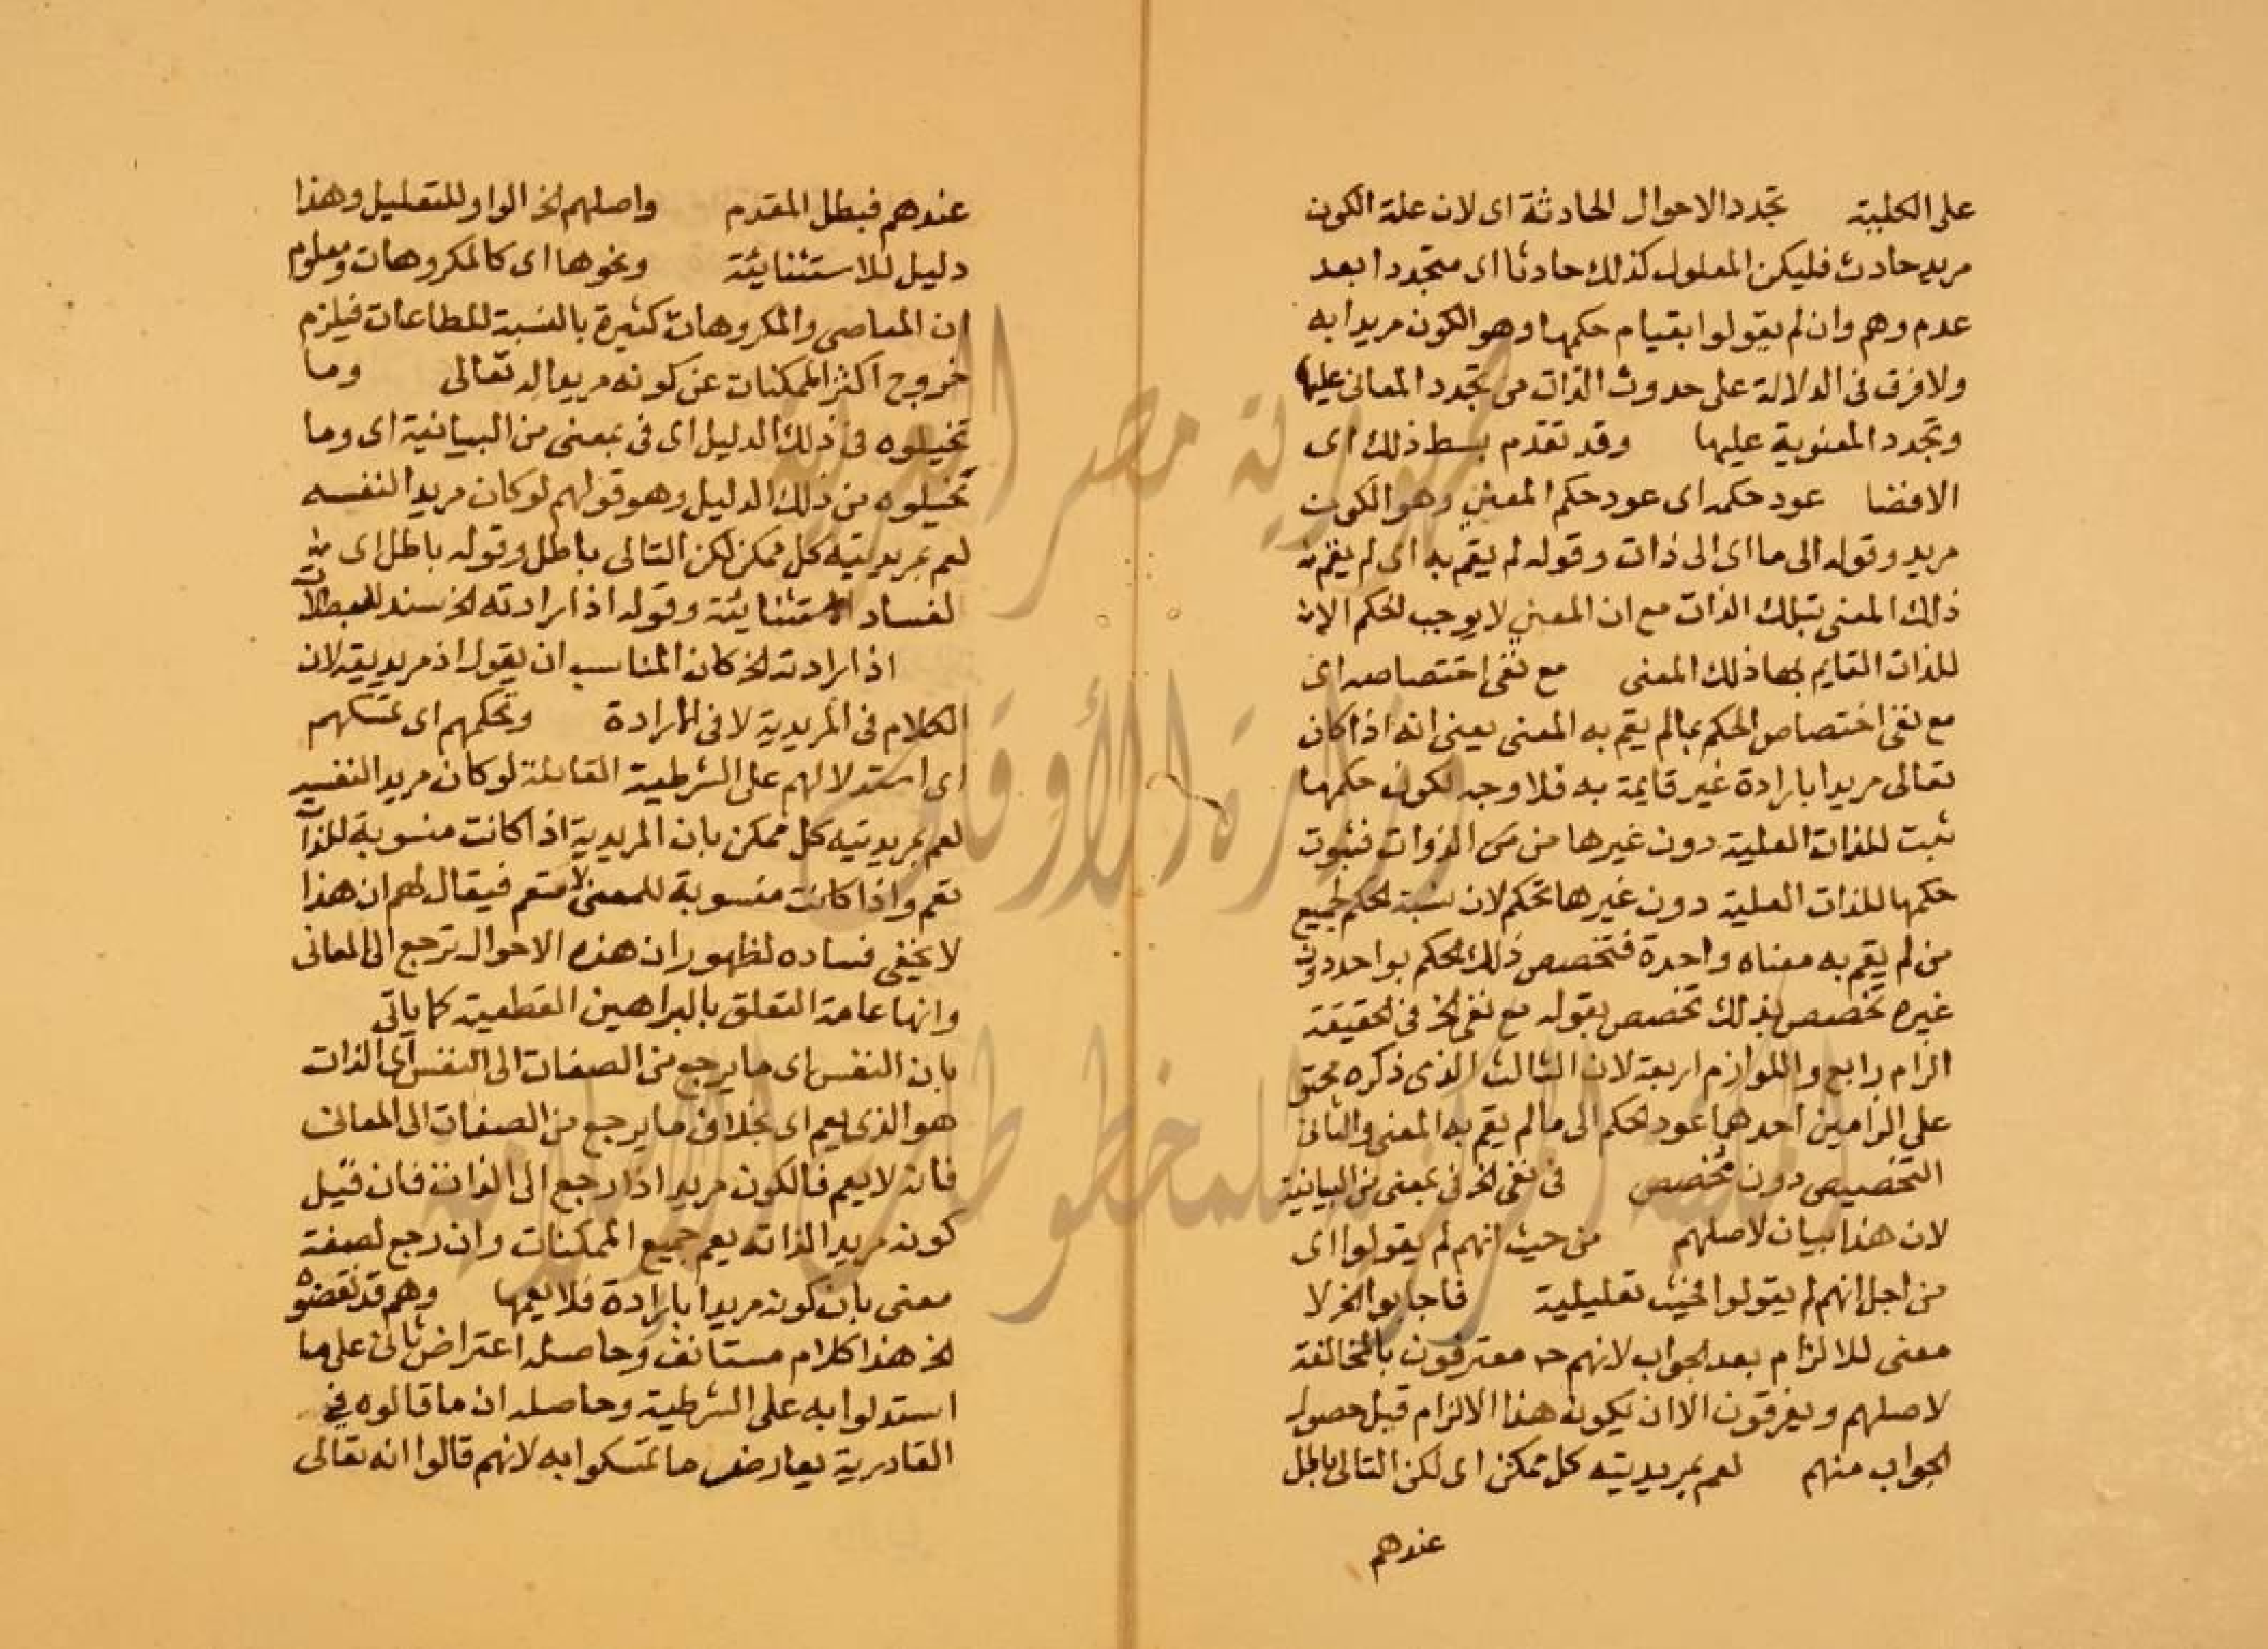 على الكلبية تجدد الاحوال الحادثة اى لان علة الكون
مريد حادث فليكن المعلول كذلك حادثا اى متجددا بعد
عدم وهم وان لم يقولوا بقيام حكمها وهو الكون مريدا به
ولا فرق فى الدلالة على حدوث الذات من تجدد المعانى عليها
وتجدد المعنوية عليها وقد تقدم بسط ذلك اى
الافضا عود حكمه اى عود حكم المعنى وهو الكون
مريد وقوله الى ما اى الى ذات وقوله لم يقم به اى لم يقم
ذلك المعنى بتلك الذات مع ان المعنى لا يوجب الحكم الا
للذات القايم بها ذلك المعنى مع نفى اختصاصه اى
مع نفى اختصاص الحكم بما لم يقم به المعنى يعنى انه اذا كان
تعالى مريدا بارادة غير قايمة به فلا وجه لكون حكمها
ثبت للذات العلية دون غيرها من الذوات فثبوت
حكمها للذات العلية دون غيرها تحكم لان نسبة الحكم لجميع
من لم يقم به معناه واحدة فتخصص ذلك الحكم بواحد دون
غيره تخصص بذلك تخصص بقوله مع نفى الخ فى الحقيقة
الزام رابع واللوازم اربعة لان الثالث الذى ذكره محتو
على الزامين احدهما عود الحكم الى ما لم يقم به المعنى والثانى
التخصيص دون مخصص فى نفى الخ فى بمعنى من البيانية
لان هذا بيان لاصلهم من حيث انهم لم يقولوا اى
من اجل انهم لم يقولوا فحيث تعليلية فاجابوا الخ لا
معنى للالزام بعد الجواب لانهم ح معترفون بالمخالفة
لاصلهم ويفرقون الا ان يكون هذا الالزام قبل حصول
الجواب منهم لعم بمريديته كل ممكن اى لكن التالى باطل
عندهم
عندهم فبطل المقدم واصلهم الخ الواو للتعليل وهذا
دليل للاستثنايئة ونحوها اى كالمكروهات ومعلوم
ان المعاصى والمكروهات كثيرة بالنسبة للطاعات فيلزم
خروج اكثر الممكنات عن كونه مريدا له تعالى وما
تخيلوه فى ذلك الدليل اى فى بمعنى من البيانية اى وما
تخيلوه من ذلك الدليل وهو قولهم لو كان مريدا لنفسه
لعم بمريديته كل ممكن لكن التالى باطل وقوله باطل اى
لفساد الاستثنايئة وقوله اذ ارادته الخ سند للبطلان
اذ ارادته الخ كان المناسب ان يقول اذ مريديته لان
الكلام فى المريدية لا فى الارادة وتحكمهم اى تمسكهم
اى استدلالهم على الشرطية القائلة لو كان مريدا لنفسه
لعم بمريديته كل ممكن بان المريدية اذا كانت منسوبة للذات
تعم واذا كانت منسوبة للمعنى لا تعم فيقال لهم ان هذا
لا يخفى فساده لظهور ان هذه الاحوال ترجع الى المعانى
وانها عامة التعلق بالبراهين القطعية كما ياتى
بان النفس اى ما يرجع من الصفات الى النفس اى الذات
هو الذى يعم اى بخلاف ما يرجع من الصفات الى المعانى
فانه لا يعم فالكون مريدا اذا رجع الى الذات فان قيل
كونه مريدا لذاته يعم جميع الممكنات وان رجع لصفة
معنى بان كونه مريدا بارادة فلا يعمها وهم قد نقضوه
الخ هذا كلام مستانف وحاصله اعتراض ثانى على ما
استدلوا به على الشرطية وحاصله ان ما قالوه فى
القادرية يعارض ما تمسكوا به لانهم قالوا انه تعالى
جمهورية مصر العربية
وزارة الأوقاف
المكتبة المركزية للمخطوطات الإسلامية